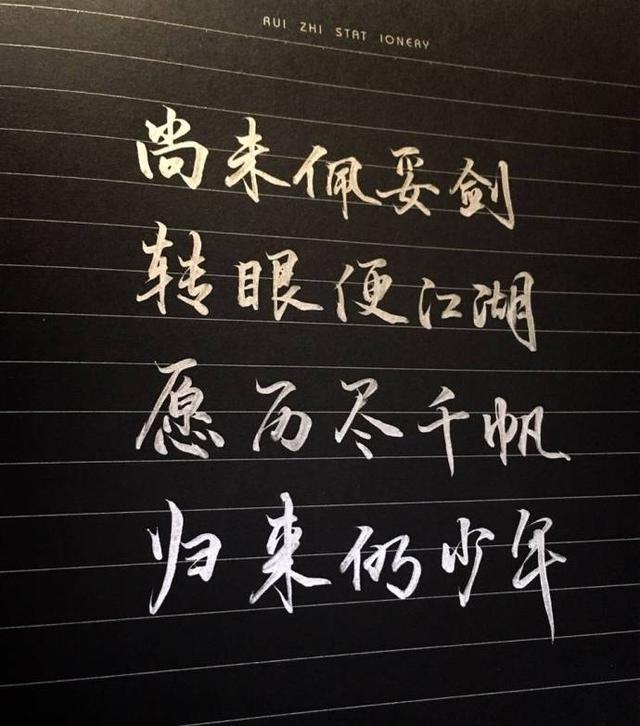 RUI ZHI STAT IONERY
尚未佩妥剑
转眼便江湖
愿历尽千帆
归来仍少年